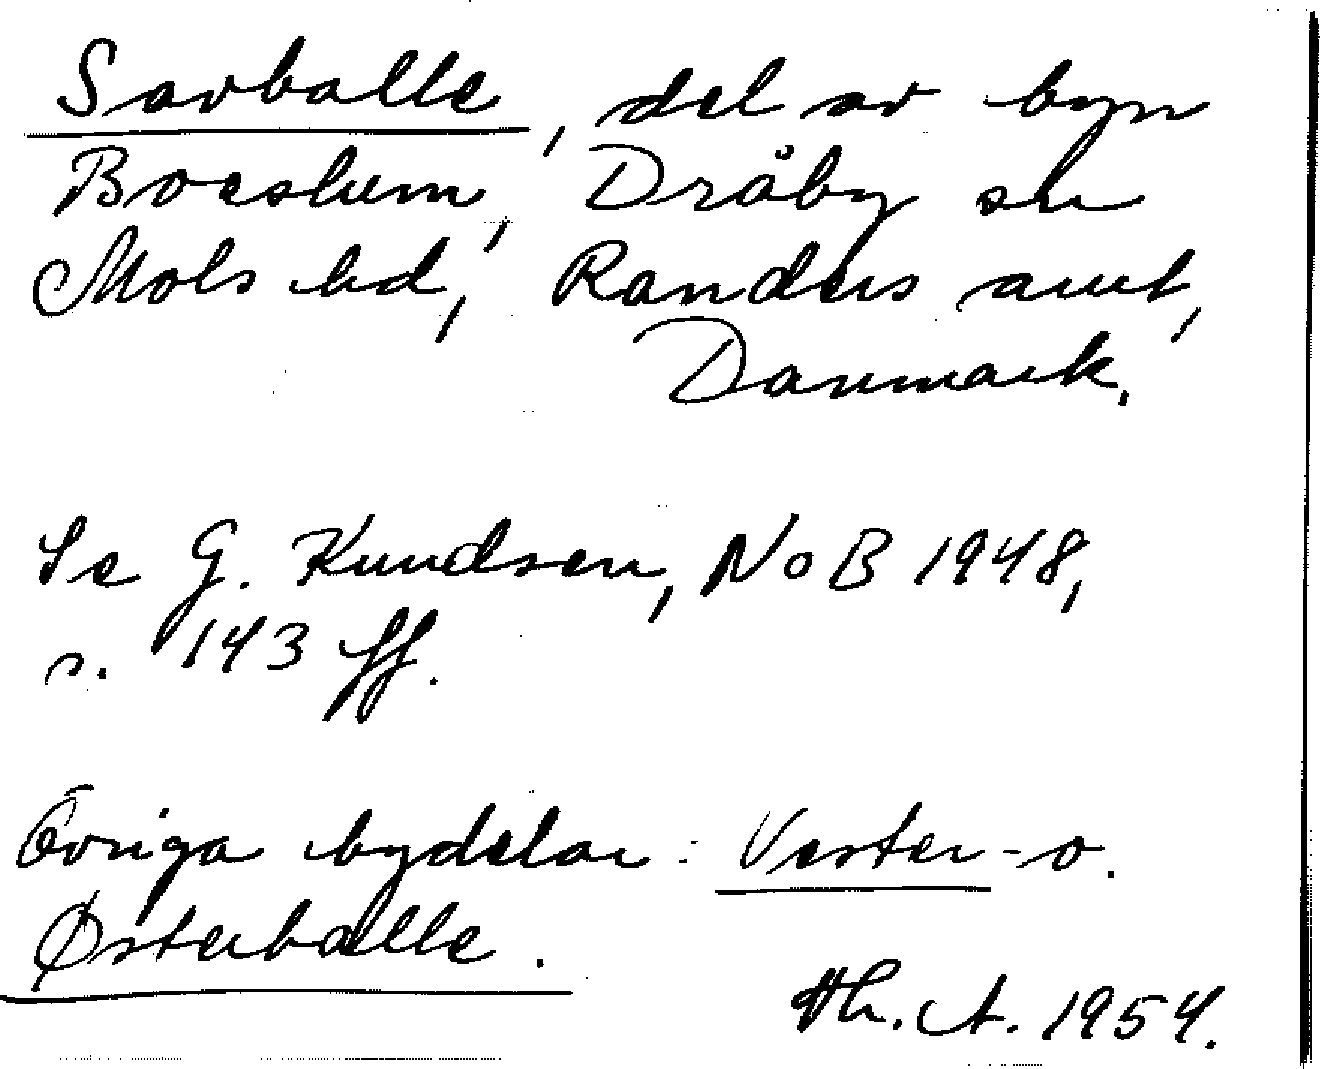 Savballe, del av byn
Boeslum, Dråby sn
Mols hd, Randers amt,
Danmark.
Se G. Knudsen, NoB 1948,
s. 143 ff.
Övriga bydelar: Vester- o.
Østerballe.
Th. A. 1954.